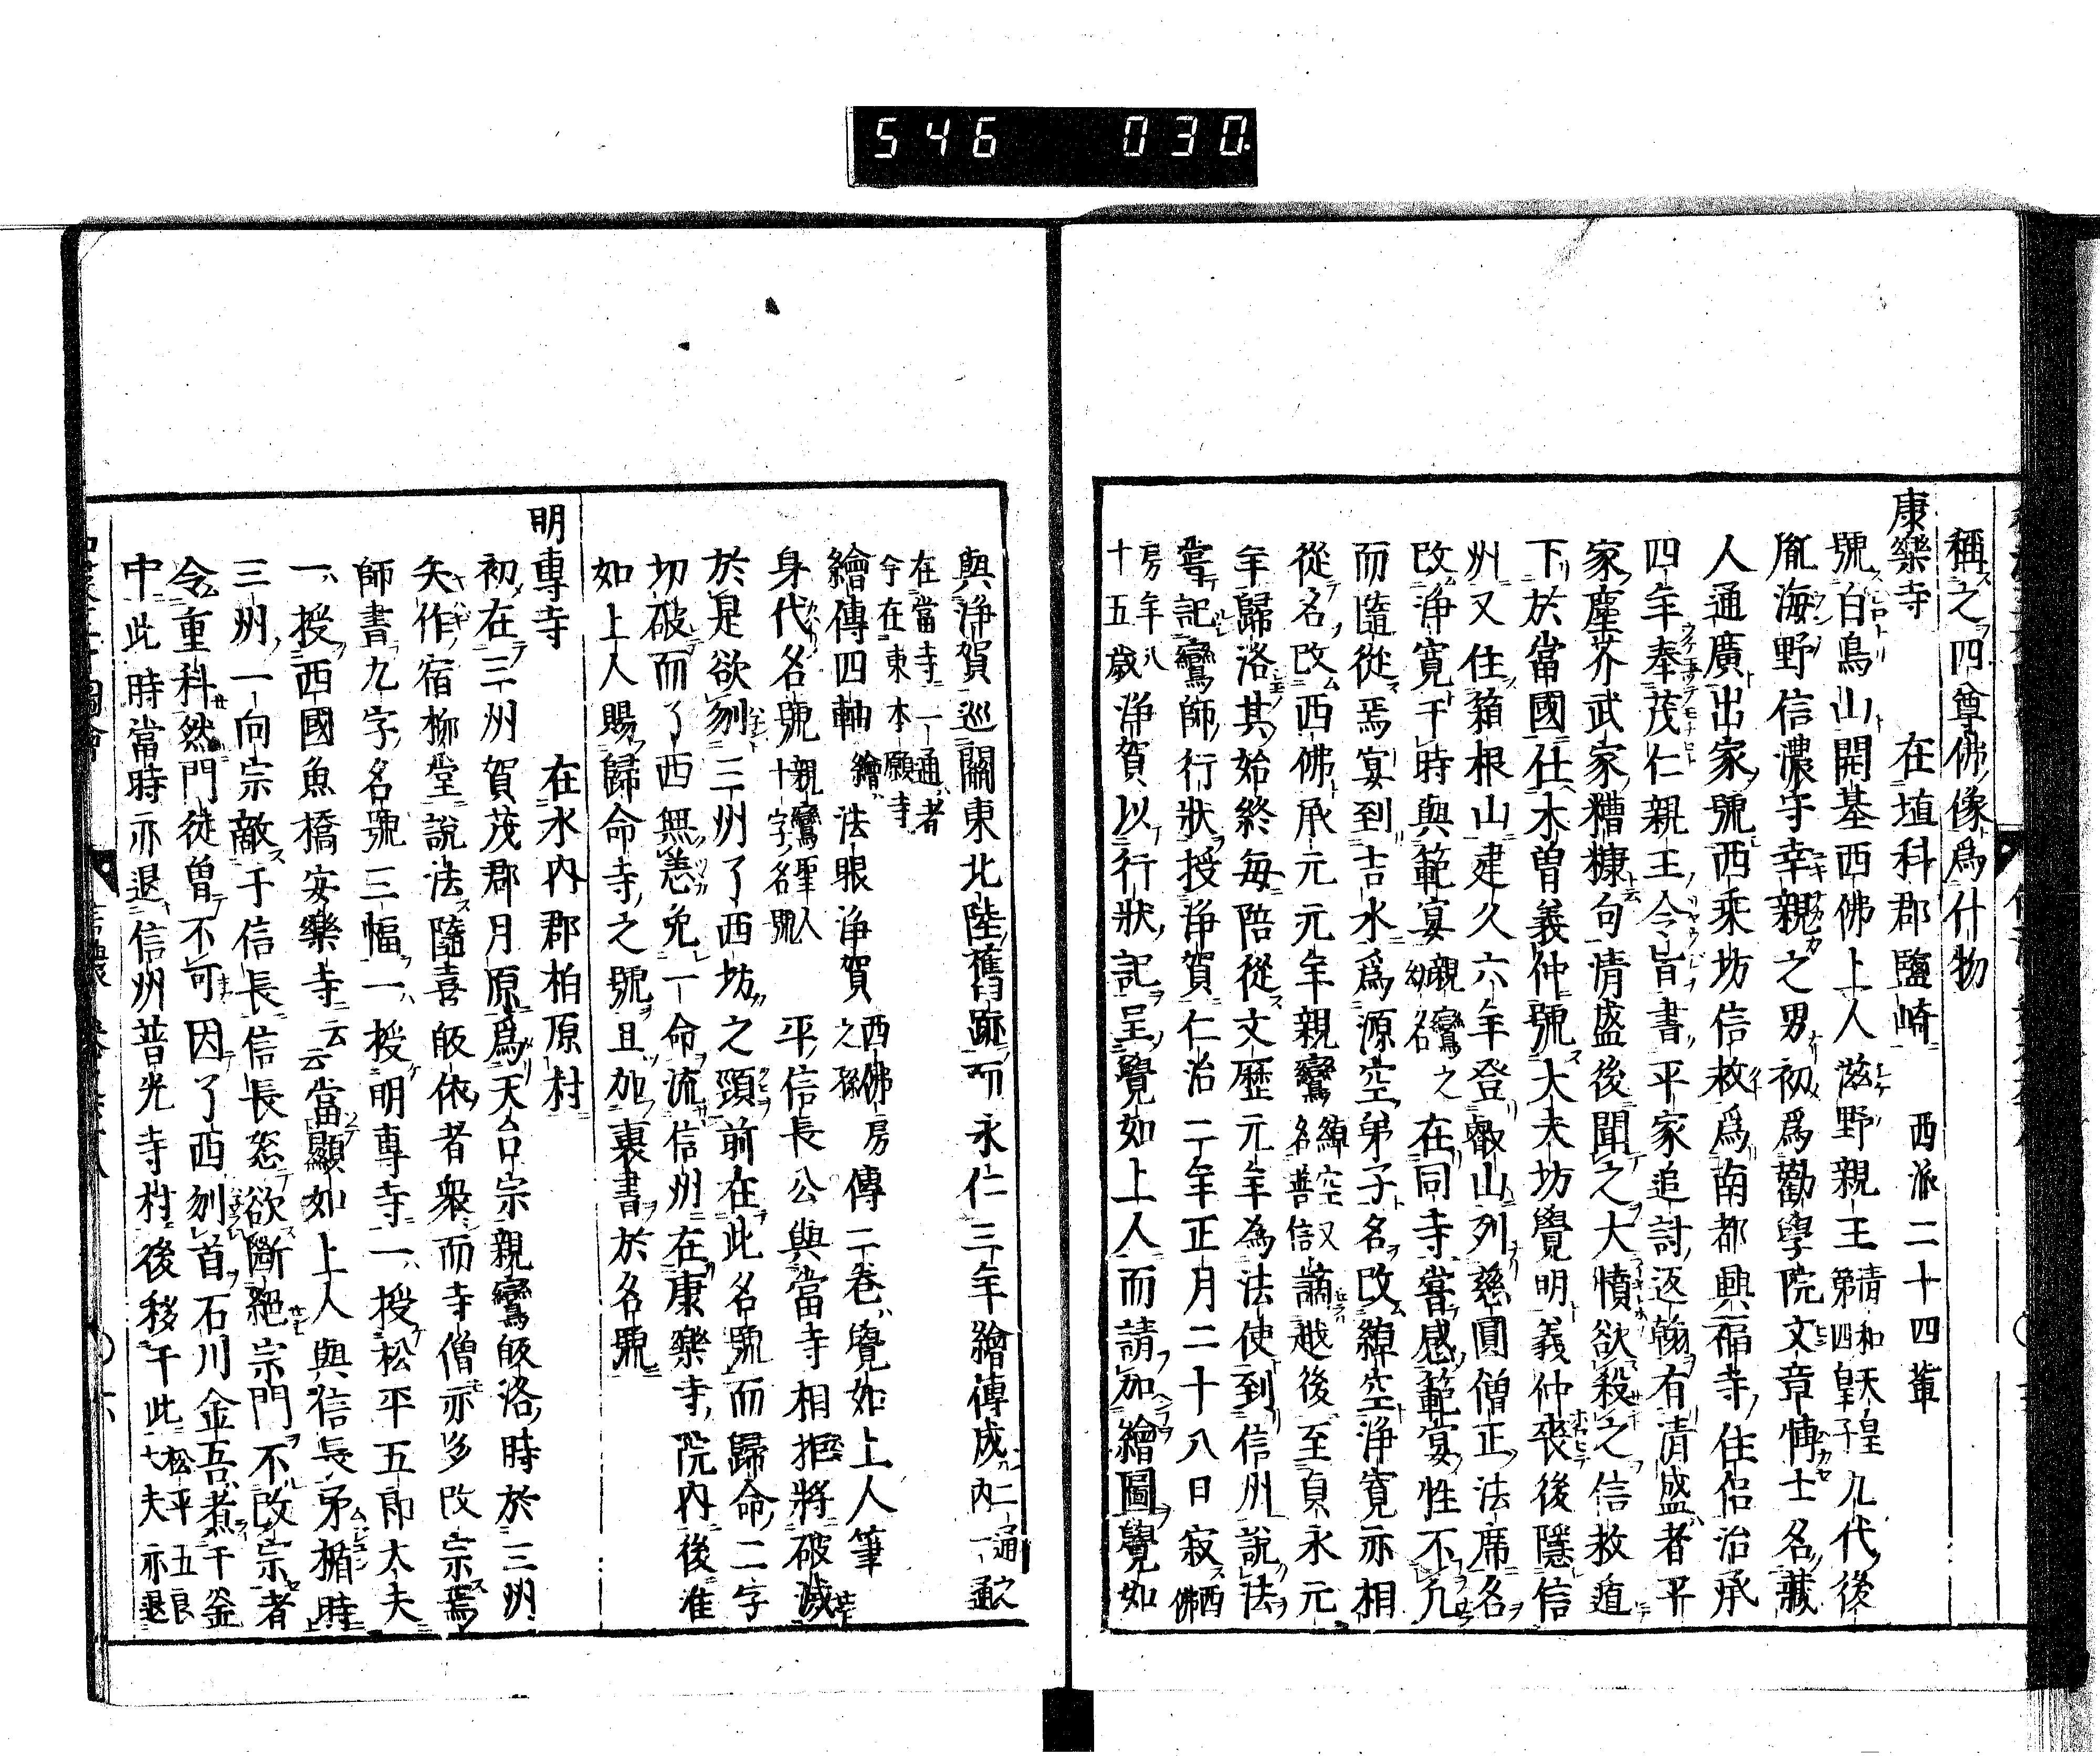 546 030
稱之四尊佛像爲什物
康樂寺 在埴科郡鹽崎 西派二十四輩
號白鳥山開基西佛上人滋野親王清和天皇第四皇子九代後
胤海野信濃守幸親之男初爲勸學院文章博士名藏
人通廣出家號西乘坊信救爲南都興福寺住侶治承
四年奉茂仁親王令旨書平家追討返翰有清盛者平
家塵芥武家糟糠句清盛後聞之大憤欲殺之信救遁
下於當國仕木曽義仲號大夫坊覺明義仲喪後隱信
州又住箱根山建久六年登叡山列慈圓僧正法席名
改浄寛于時與範宴親鸞之幼名在同寺嘗感範宴性不凡
而隨從焉宴到吉水爲源空弟子名改綽空浄寛亦相
從名改西佛承元元年親鸞綽空又名善信謫越後至貞永元
年歸洛其始終毎陪從文歴元年為法使到信州説法
嘗記鸞師行狀授浄賀仁治二年正月二十八日寂西佛
房年八十五歳浄賀以行狀記呈覺如上人而請加繪圖覺如
與浄賀巡關東北陸舊跡而永仁三年繪傳成内二通之一通
在當寺一通者今在東本願寺
繪傳四軸繪法眼浄賀西佛房之孫傳二卷覺如上人筆
身代名號親鸞聖人十字名號 平信長公與當寺相拒將破滅
於是欲刎三州了西坊之頸前在此名號而歸命二字
切破而了西無恙免一命流信州在康樂寺院内後准
如上人賜歸命寺之號且加裏書於名號
明專寺 在水内郡柏原村
初在三州賀茂郡月原爲天台宗親鸞皈洛時於三州
矢作宿柳堂説法隨喜皈依者衆而寺僧亦多改宗焉
師書九字名號三幅一授明專寺一授松平五郎太夫
一授西國魚橋安樂寺云云當顯如上人與信長矛楯時
三州一向宗敵于信長信長怒欲斷絶宗門不改宗者
令重科然門徒曽不可因了西刎首石川金吾煮于釜
中此時當時亦退信州普光寺村後移于此松平五良七夫亦退